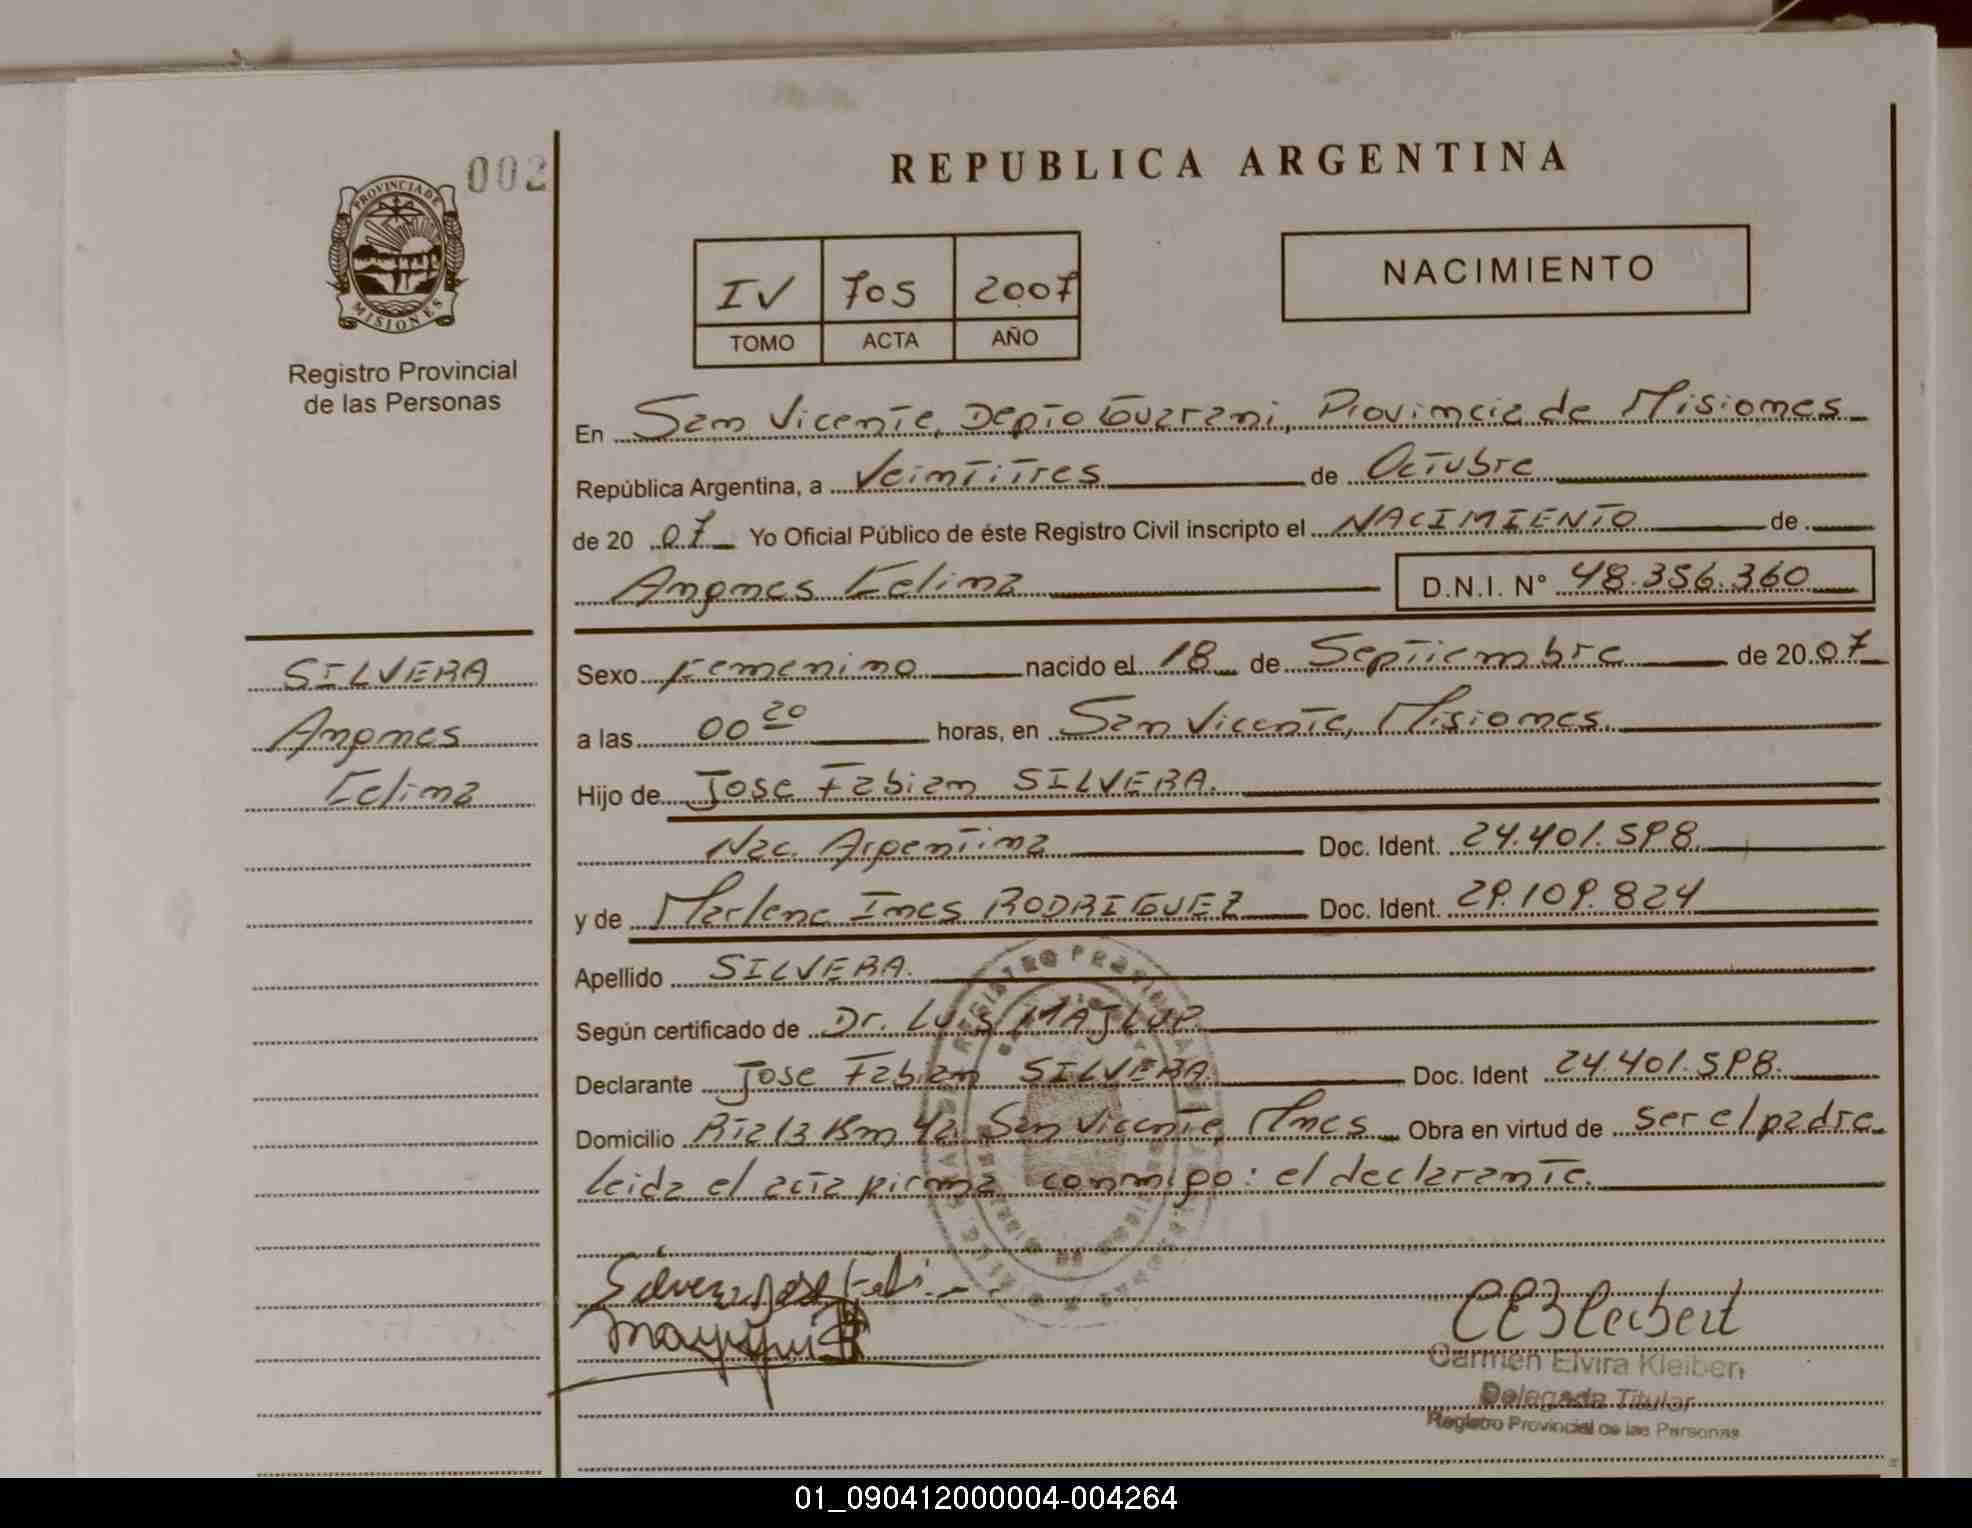 002
PROVINCIA DE
MISIONES
Registro Provincial
de las Personas
REPUBLICA ARGENTINA
IV 705 2007
TOMO ACTA AÑO
NACIMIENTO
En San Vicente, Depto Guarani, Provincia de Misiones
República Argentina, a Veintitres de Octubre
de 20 07 Yo Oficial Público de éste Registro Civil inscripto el NACIMIENTO de
Angnes Celina D.N.I. N° 48.356.360
SILVERA
Angnes
Celina
Sexo Femenino nacido el 18 de Septiembre de 20 07
a las 00 20 horas, en San Vicente, Misiones.
Hijo de Jose Fabian SILVERA.
Nac. Argentina Doc. Ident. 24.401.598.
y de Marlene Ines RODRIGUEZ Doc. Ident. 29.109.824
Apellido SILVERA.
Según certificado de Dr. Luis MAJLUP.
Declarante Jose Fabian SILVERA Doc. Ident 24.401.598.
Domicilio Rta 13 Km 42 San Vicente, Mnes Obra en virtud de ser el padre.
Leida el acta firma conmigo: el declarante.
Silvera Jose Fabi
CEKleibert
Carmen Elvira Kleibert
Delegada Titular
Registro Provincial de las Personas
01_090412000004-004264